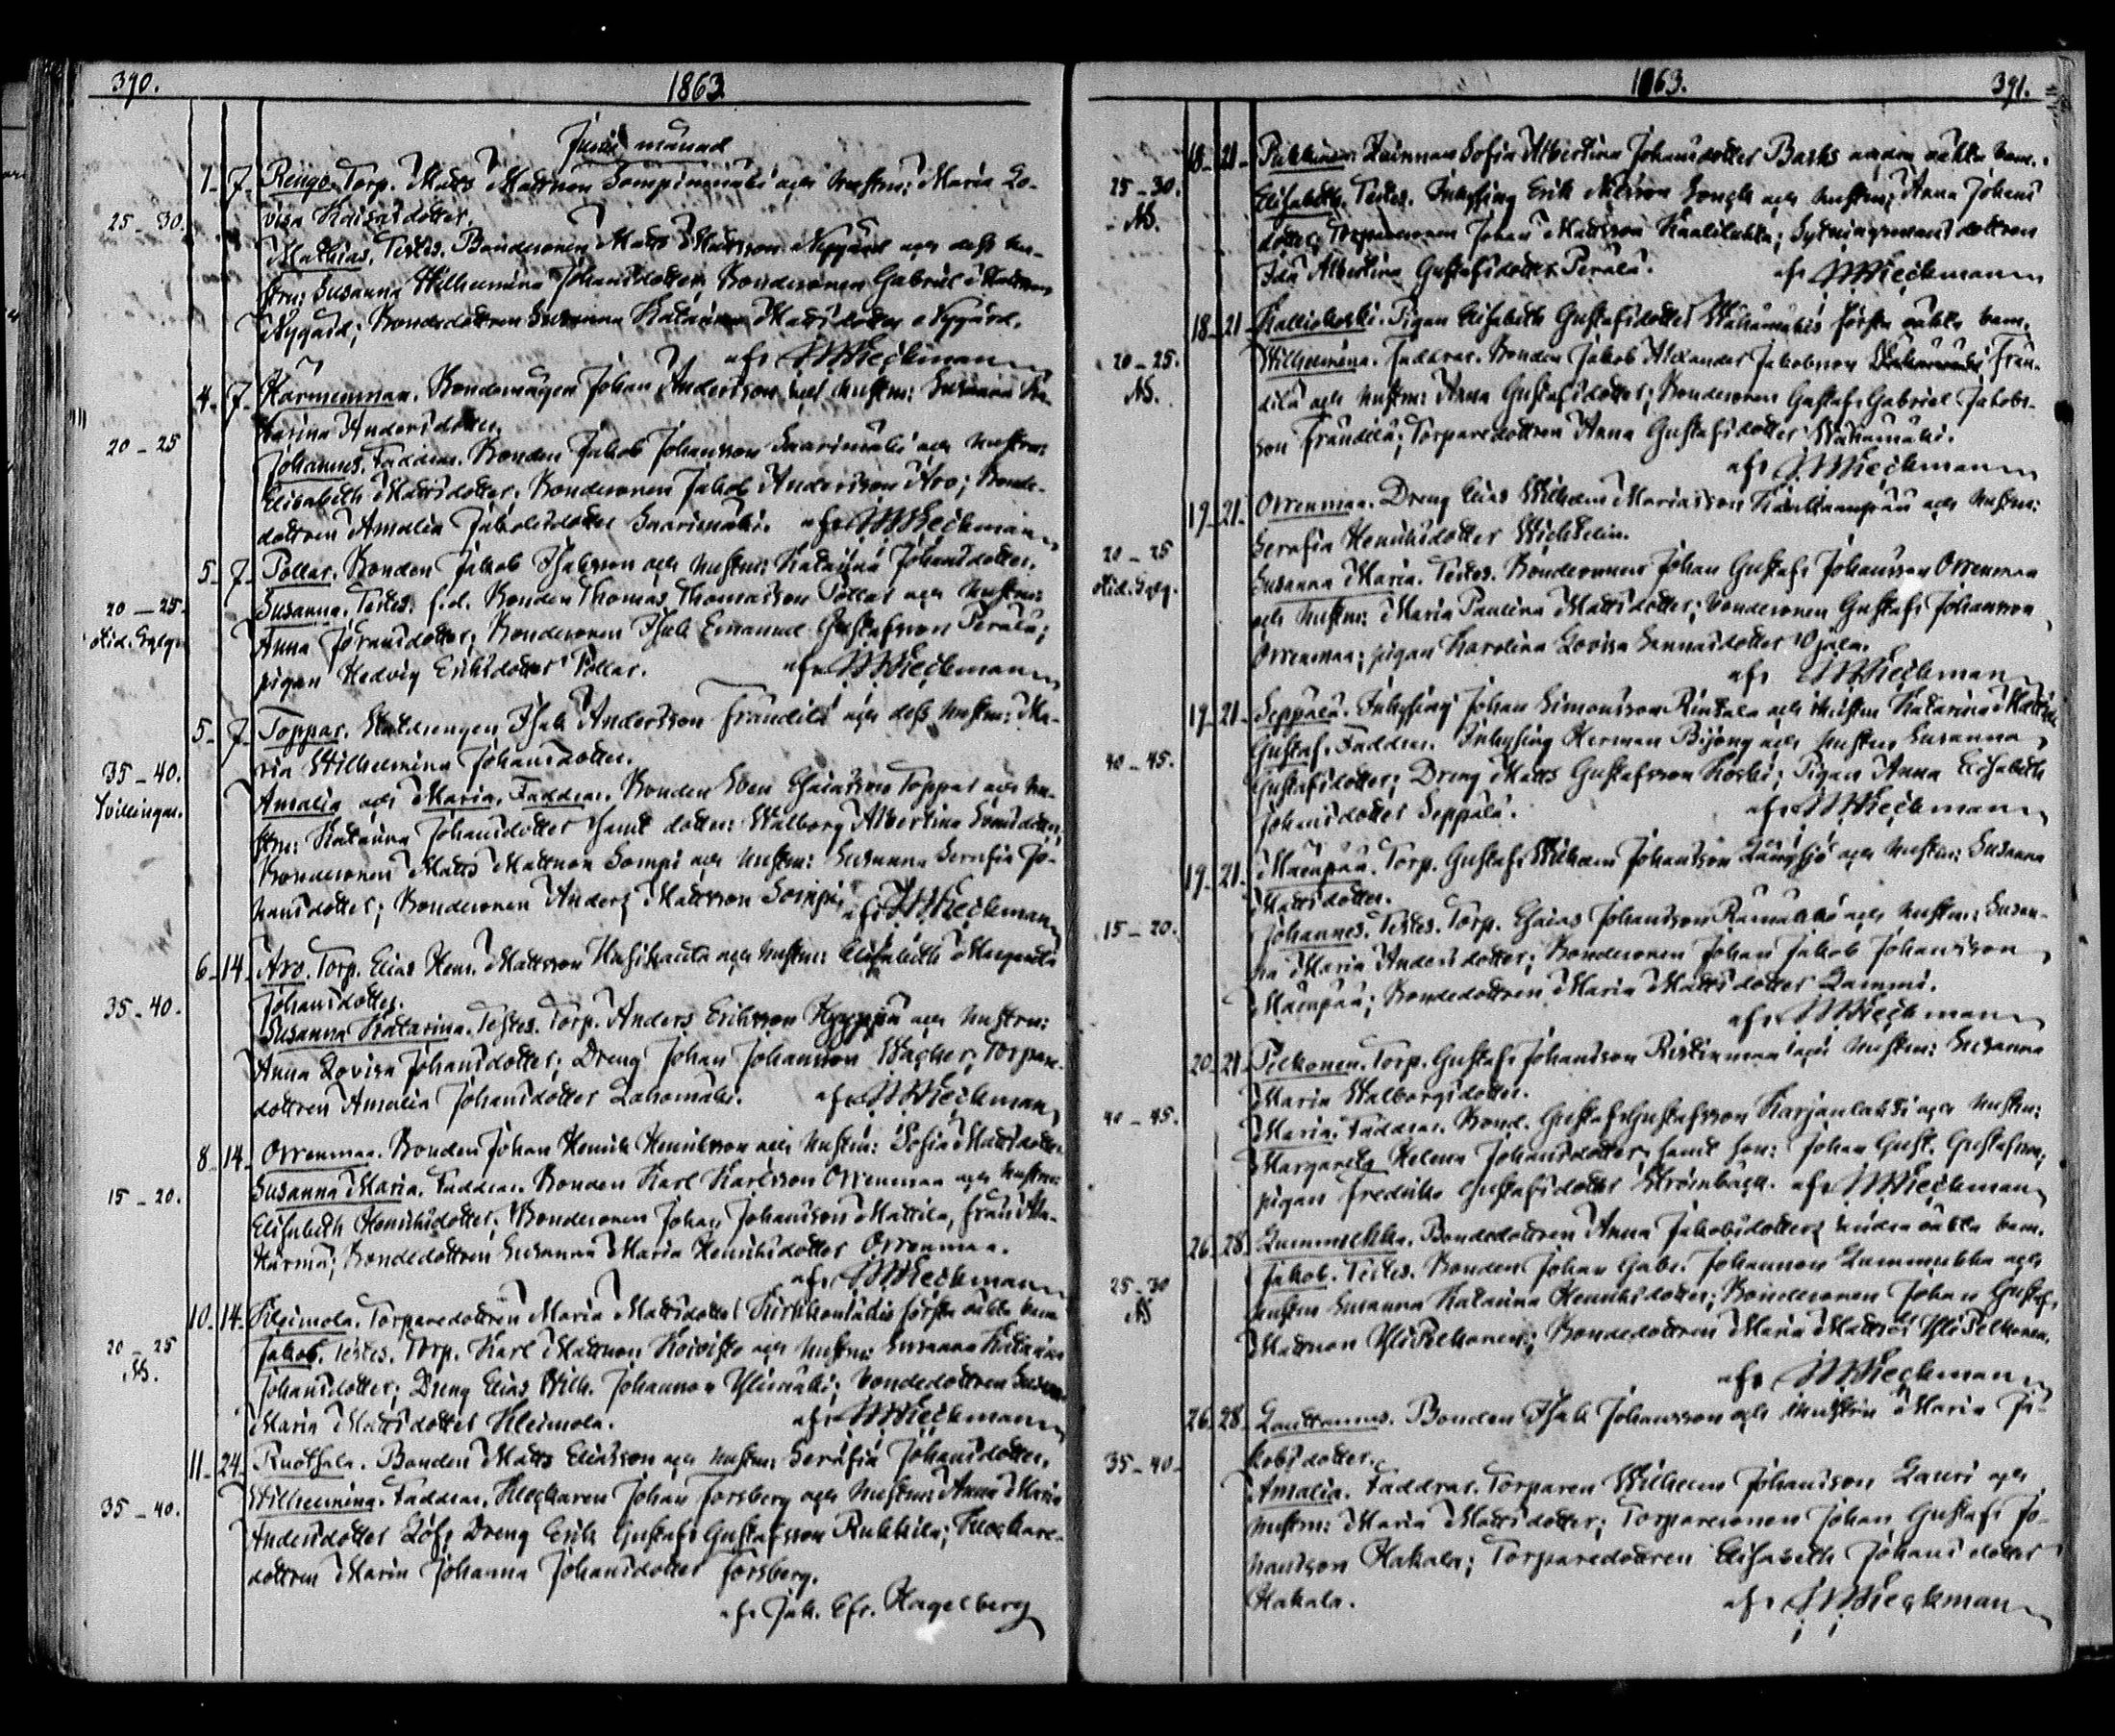 390.
1863
Junii månad
1. 7. Rengo. Torp. Matts Mattsson Sompinmäki och hustru: Maria Lo-
25 – 30. visa Kaisasdotter.
Mathias. Testes. Bondesonen Matts Mattsson Nygård och dess hu-
stru: Susanna Wilhelmina Johansdotter; Bondesonen Gabriel Mattsson
Nygård; Bondedottren Susanna Katarina Mattsdotter Nygård.
af J. W. Reckman
4. 7. Bondemågen Johan Andersson och hustru: Susanna Ka-
tarina Andersdotter.
20 – 25 Johannes. Faddrar. Bonden Jakob Johansson Saarimäki och hustru
Elisabeth Mattsdotter. Bondesonen Jakob Andersson Aro; Bonde-
dottren Amalia Jakobsdotter Saarimäki. af
5. 7. Pollar. Bonden Jakob Isaksson och hustru: Katarina Johansdotter.
20 – 25. Susanna. Testes. f.d. Bonden Thomas Thomasson Pollar och hustru:
Anna Jöransdotter; Bondesonen Isak Emanuel Gustafsson Perälä;
pigan Hedvig Eriksdotter Pollar. af
5. 7. Toppar. Isak Andersson Frändilä och dess hustru: Ma-
ria Wilhelmina Johansdotter.
35 – 40. Amalia och Maria. Faddrar. Bonden Sven Esaiasson Toppar och hu-
Tvillingar. stru: Katarina Johansdotter samt dotter: Walborg Albertina Svensdotter;
Bondesonen Matts Mattsson Sompi och hustru: Susanna Serafia Jo-
hansdotter; Bondesonen Anders Mattsson Sompi. af
6. 14. Aro. Torp. Elias Henr. Mattsson och hustru: Elisabeth Margareta
Johansdotter.
35 – 40. Susanna Katarina. Testes. Torp. Anders Eriksson Hyyppä och hustru:
Anna Lovisa Johansdotter; Dreng Johan Johansson Wagner; Torpare-
dottren Amalia Johansdotter Lahomäki. af
8. 14. Orrenmaa. Bonden Johan Henrik Henriksson och hustru: Sofia Mattsdotter.
15 – 20. Susanna Maria. Faddrar. Bonden Karl Karlsson Orrenmaa och hustru:
Elisabeth Henriksdotter; Bondesonen Johan Johansson Mattila, från
Härmä; Bondedottren Susanna Maria Henriksdotter Orrenmaa.
af
10. 14. Kleimola. Torparedottren Maria Mattsdotter första oäkta barn
20 – 25 Jakob. Testes. Torp. Karl Mattsson Koivisto och hustru: Susanna Katarina
Johansdotter; Dreng Elias Wilh. Johansson Ylimäki; bondedottren
Maria Mattsdotter Kleimola. af
11. 24. Ruotsala. Bonden Matts Eliasson och hustru: Serafia Johansdotter.
35 – 40. Wilhelmina. Faddrar. Klockaren Johan Forsberg och hustru: Anna Maria
Andersdotter Löf; Dreng Erik Gustaf Gustafsson Ruhkila; Klockare-
dottren Maria Johanna Johansdotter Forsberg.
af Jak. Efr. Hagelberg
1863.
391.
18. 21. Sofia Albertina Johansdotter Basks andra oäkta barn.
25 – 30. Elisabeth. Testes. Inhysing Erik Nilsson och hustru: Anna Johans
dotter; Torparesonen Johan Mattsson; Sytningsmansdottren
Ida Albertina Gustafsdotter Perälä. af
18. 21. Kalliokoski. Pigan Elisabeth Gustafsdotter Wähämäkis första oäkta barn.
20 – 25. Wilhelmina. Faddrar. Bonden Jakob Alexander Jakobsson Frän-
dilä och hustru: Anna Gustafsdotter; Bondesonen Gustaf Gabriel Jakobs-
son Frändilä; Torparedottren Anna Gustafsdotter Wähämäki.
af
19. 21. Orrenmaa. Dreng Elias Wilhelm Mariasson Kankaanpää och hustru:
Serafia Henriksdotter
20 – 25 Susanna Maria. Testes. Bondesonen Johan Gustaf Johansson Orrenmaa
och hustru: Maria Paulina Mattsdotter; bondesonen Gustaf Johansson
Orrenmaa; pigan Karolina Lovisa Sannasdotter
af
19. 21. Seppälä. Inhysing Johan Simonsson Rintala och hustru Katarina
40 – 45. Gustaf. Faddrar. Inhysing Herman och hustru Susanna
Gustafsdotter; Dreng Matts Gustafsson Koski; Pigan Anna Elisabeth
Johansdotter Seppälä. af
19. 21. Mäenpää. Torp. Gustaf Wilhelm Johansson Långsjö och hustru: Susanna
Mattsdotter.
15 – 20. Johannes. Testes. Torp. Esaias Johansson och hustru: Susan-
na Maria Andersdotter; Bondesonen Johan Jakob Johansson
Mäenpää; Bondedottren Maria Mattsdotter Lammi.
af
20. 21. Pelkonen. Torp. Gustaf Johansson Ristinmaa och hustru: Susanna
Maria Walborgsdotter.
40 – 45. Maria. Faddrar. Bond. Gustaf Gustafsson Karjanlahti och hustru:
Margareta Helena Johansdotter, samt son: Johan Gust. Gustafsson;
pigan Fredrika Gustafsdotter Strömbäck. af
26. 28. Bondedottren Anna Jakobsdotters oäkta barn.
25 – 30 Jakob. Testes. Bonden Johan Gabr. Johansson och
hustru Susanna Katarina Henriksdotter; Bondesonen Johan Gustaf
Mattsson YliPelkonen; Bondedottren Maria Mattsdr YliPelkonen.
af
26. 28. Bonden Isak Johansson och hustru Maria Ja-
kobsdotter.
35 – 40. Amalia. Faddrar. Torparen Wilhelm Johansson Lauri och
hustru: Maria Mattsdotter; Torparesonen Johan Gustaf Jo-
hansson Hakala; Torparedottren Elisabeth Johansdotter
Hakala. af